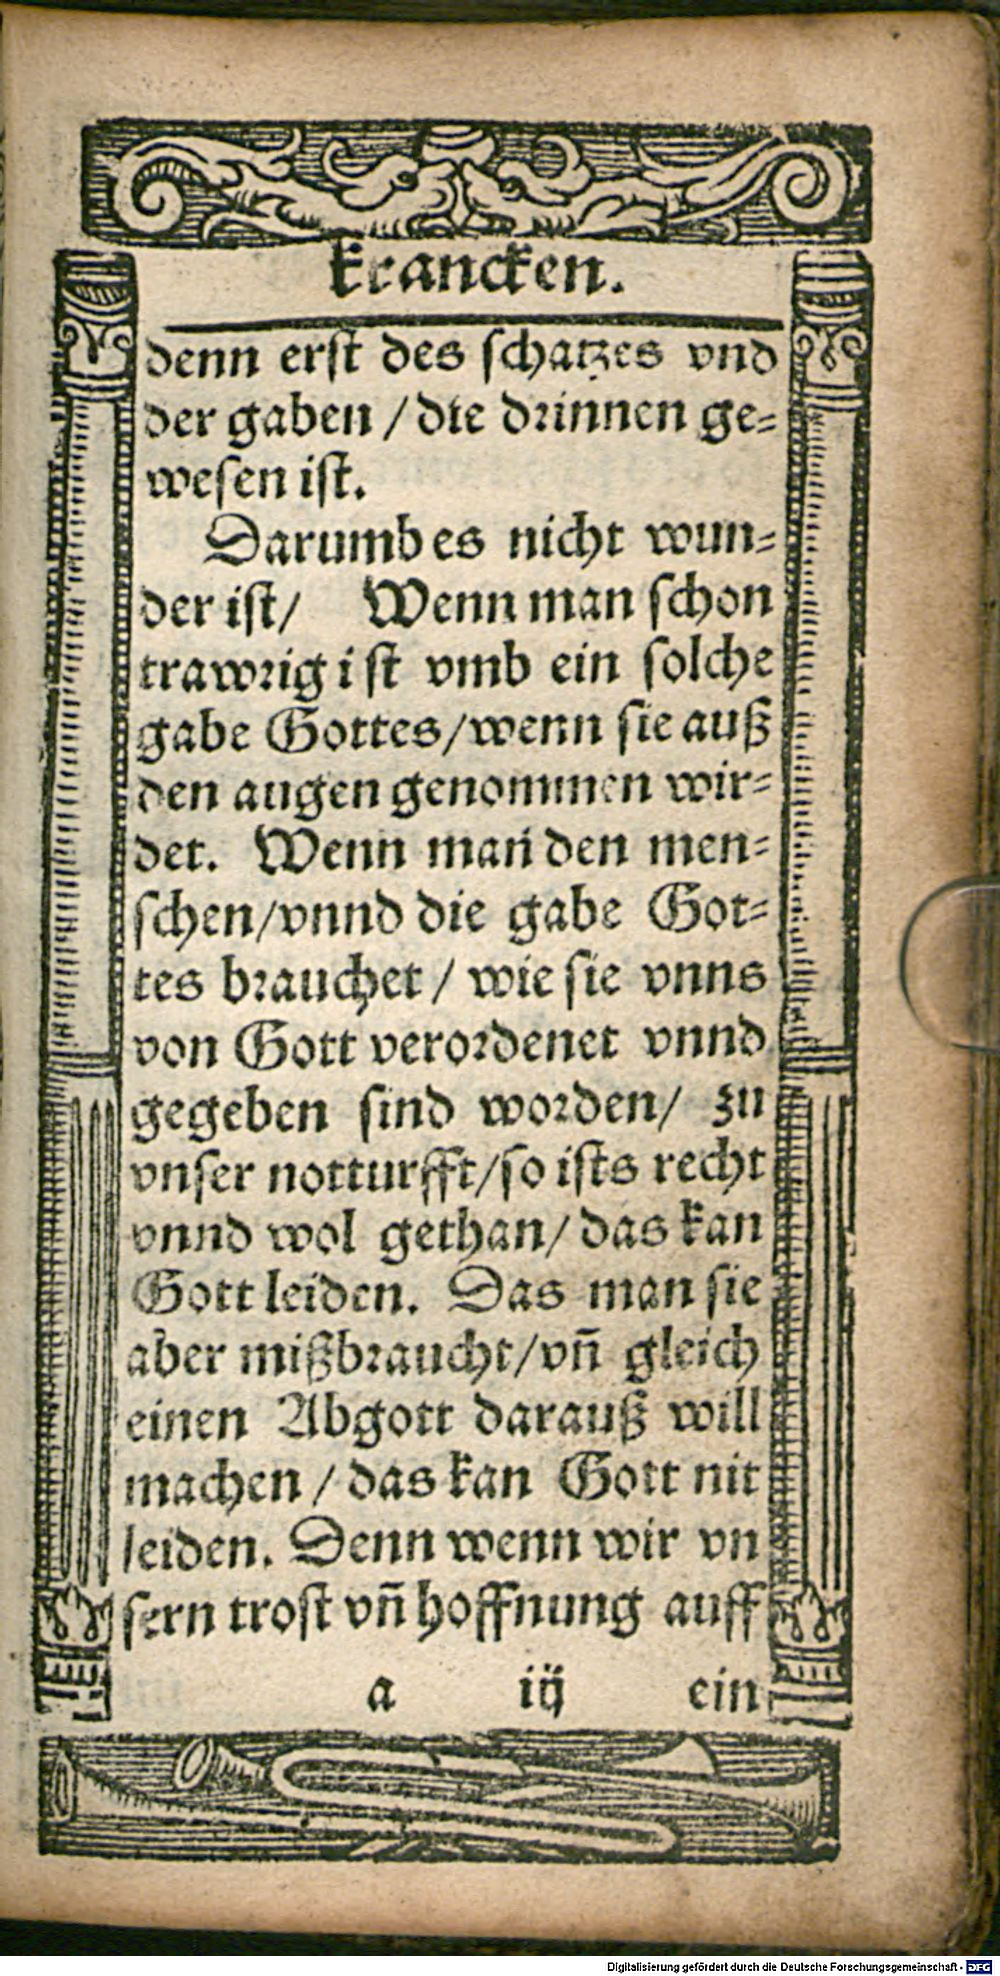 krancken.
denn erſt des ſchatzes vnd
der gaben / dte drinnen ge⸗
weſen iſt.
Darumb es nicht wun⸗
der iſt/ Wenn man ſchon
trawrig iſt vmb ein ſolche
gabe Gottes/wenn ſie auß
den augen genommen wir⸗
det. Wenn man den men⸗
ſchen/vnnd die gabe Got⸗
tes brauchet / wie ſie vnns
von Gott verordenet vnnd
gegeben ſind worden/ zu
vnſer notturfft/ſo iſts recht
vnnd wol gethan/ das kan
Gott leiden. Das man ſie
aber mißbraucht/vñ gleich
einen Abgott darauß will
machen / das kan Gott nit
leiden. Denn wenn wir vn
ſern troſt vñ hoffnung auff
a iij ein
Digitalisierung gefördert durch die Deutsche Forschungsgemeinschaft - DFG